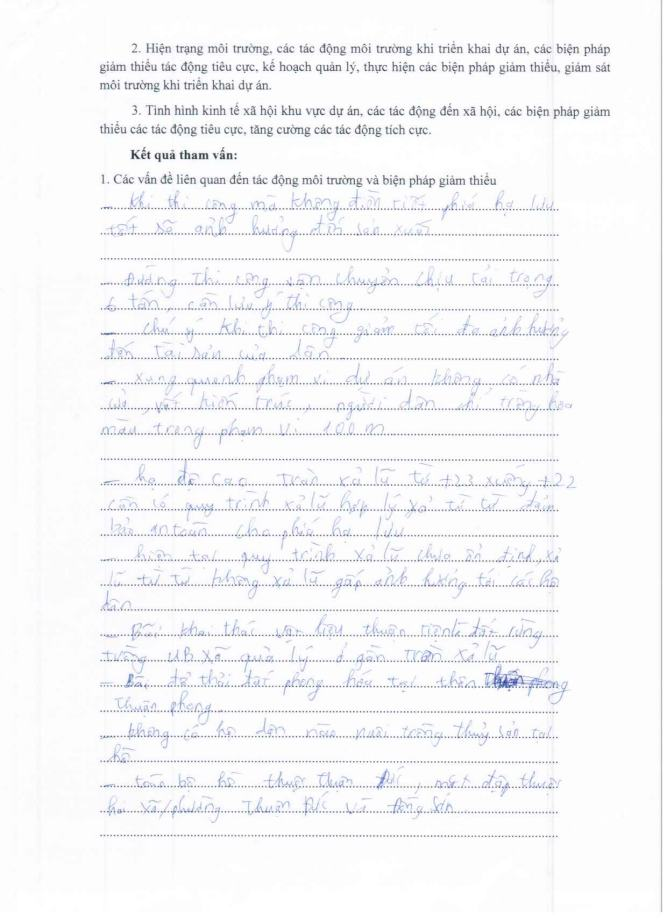 2. Hiện trạng môi trường, các tác động môi trường khi triển khai dự án, các biện pháp
giảm thiểu tác động tiêu cực, kế hoạch quản lý, thực hiện các biện pháp giảm thiểu, giám sát
môi trường khi triển khai dự án.
3. Tình hình kinh tế xã hội khu vực dự án, các tác động đến xã hội, các biện pháp giảm
thiểu các tác động tiêu cực, tăng cường các tác động tích cực.
Kết quả tham vấn:
1. Các vấn đề liên quan đến tác động môi trường và biện pháp giảm thiểu
- Khi thi công mà không phía hạ lưu
ảnh hưởng đến sản xuất
- Đường thi công vận chuyển chịu tải trọng
6 tấn, cần lưu ý thi công
- Chú ý khi thi công giảm tối đa ảnh hưởng
đến tài sản của dân
- Xung quanh phạm vi dự án không có nhà
cửa, vật kiến trúc, người dân chỉ trồng hoa
màu trong phạm vi 100m
- hạ độ cao tràn xả lũ từ +23 xuống +22
cần có quy trình xả lũ hợp lý xả từ từ đảm
bảo an toàn cho phía hạ lưu
- hiện tại quy trình xả lũ chưa ổn định, xả
lũ từ từ không xả lũ gấp ảnh hưởng tới các hộ
dân
- Bãi khai thác vật liệu thuận đất
UB xã quản lý ở gần tràn xả lũ
- Bãi đổ thải đất phong hóa tại thôn
Thuận phong
- không có hộ dân nào nuôi trồng thủy sản tại
hồ
- toàn bộ hồ thuộc Thuận Đức, một đập thuộc
hai xã/phường Thuận Đức và Đồng Sơn